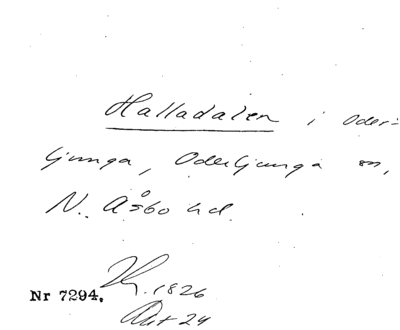 Halladalen i Oder=
ljunga, Oderljunga sn,
N. Åsbo hd.
Nr 7294. 1826
Akt 24